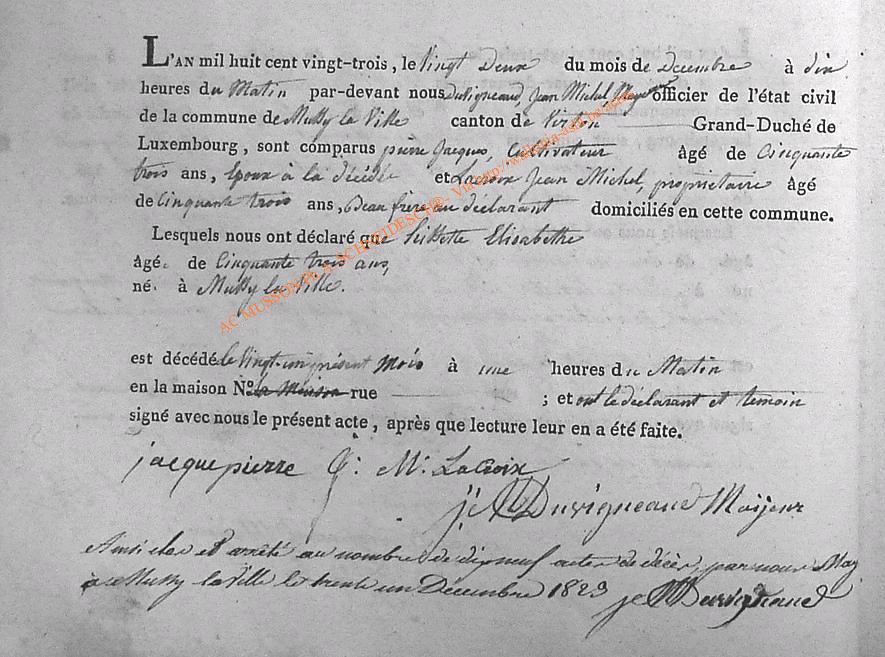 L'AN mil huit cent vingt-trois, le Vingt Deux du mois de Decembre à dix
heures du Matin par-devant nous Duvigneaud, Jean Michel, officier de l'état civil
de la commune de Mussy la Ville canton de Virton Grand-Duché de
Luxembourg, sont comparus pierre Jacques, Cultivateur âgé de Cinquante
trois ans, Epoux à la décédée et Lacroix Jean Michel, propriétaire âgé
de Cinquante trois ans, Beau frere au déclarant domiciliés en cette commune.
Lesquels nous ont déclaré que Elisabethe
âgée de Cinquante trois ans,
né à Mussy la Ville.
est décédé le Vingt-un présent Mois à une heures du Matin
en la maison N° la Maison rue ; et ont le déclarant et temoin
signé avec nous le présent acte, après que lecture leur en a été faite.
jacque pierre J: M: LaCroix
j: M Duvigneaud Maijeur
Ainsi clos et arrêté au nombre de dix neuf actes de décès, par nous May
a Mussy la Ville le trente un Décembre 1823 j M Duvigneaud
AC MUSSON